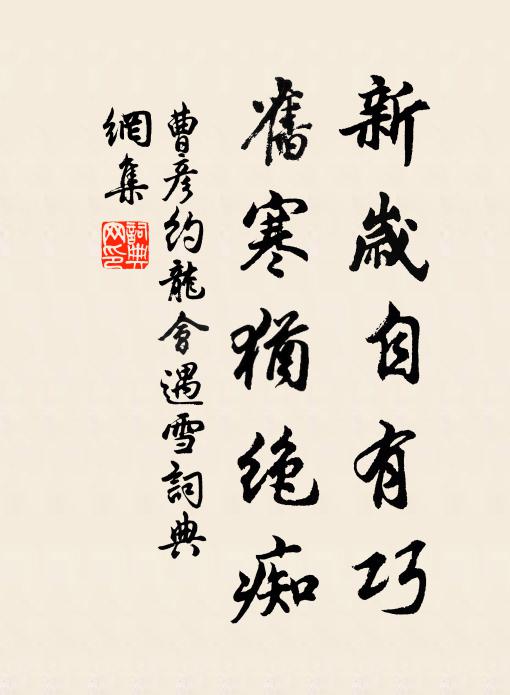 新歲自有巧
舊寒猶絕痴
曹彦約龍會遇雪詞典
網集
詞典
网印